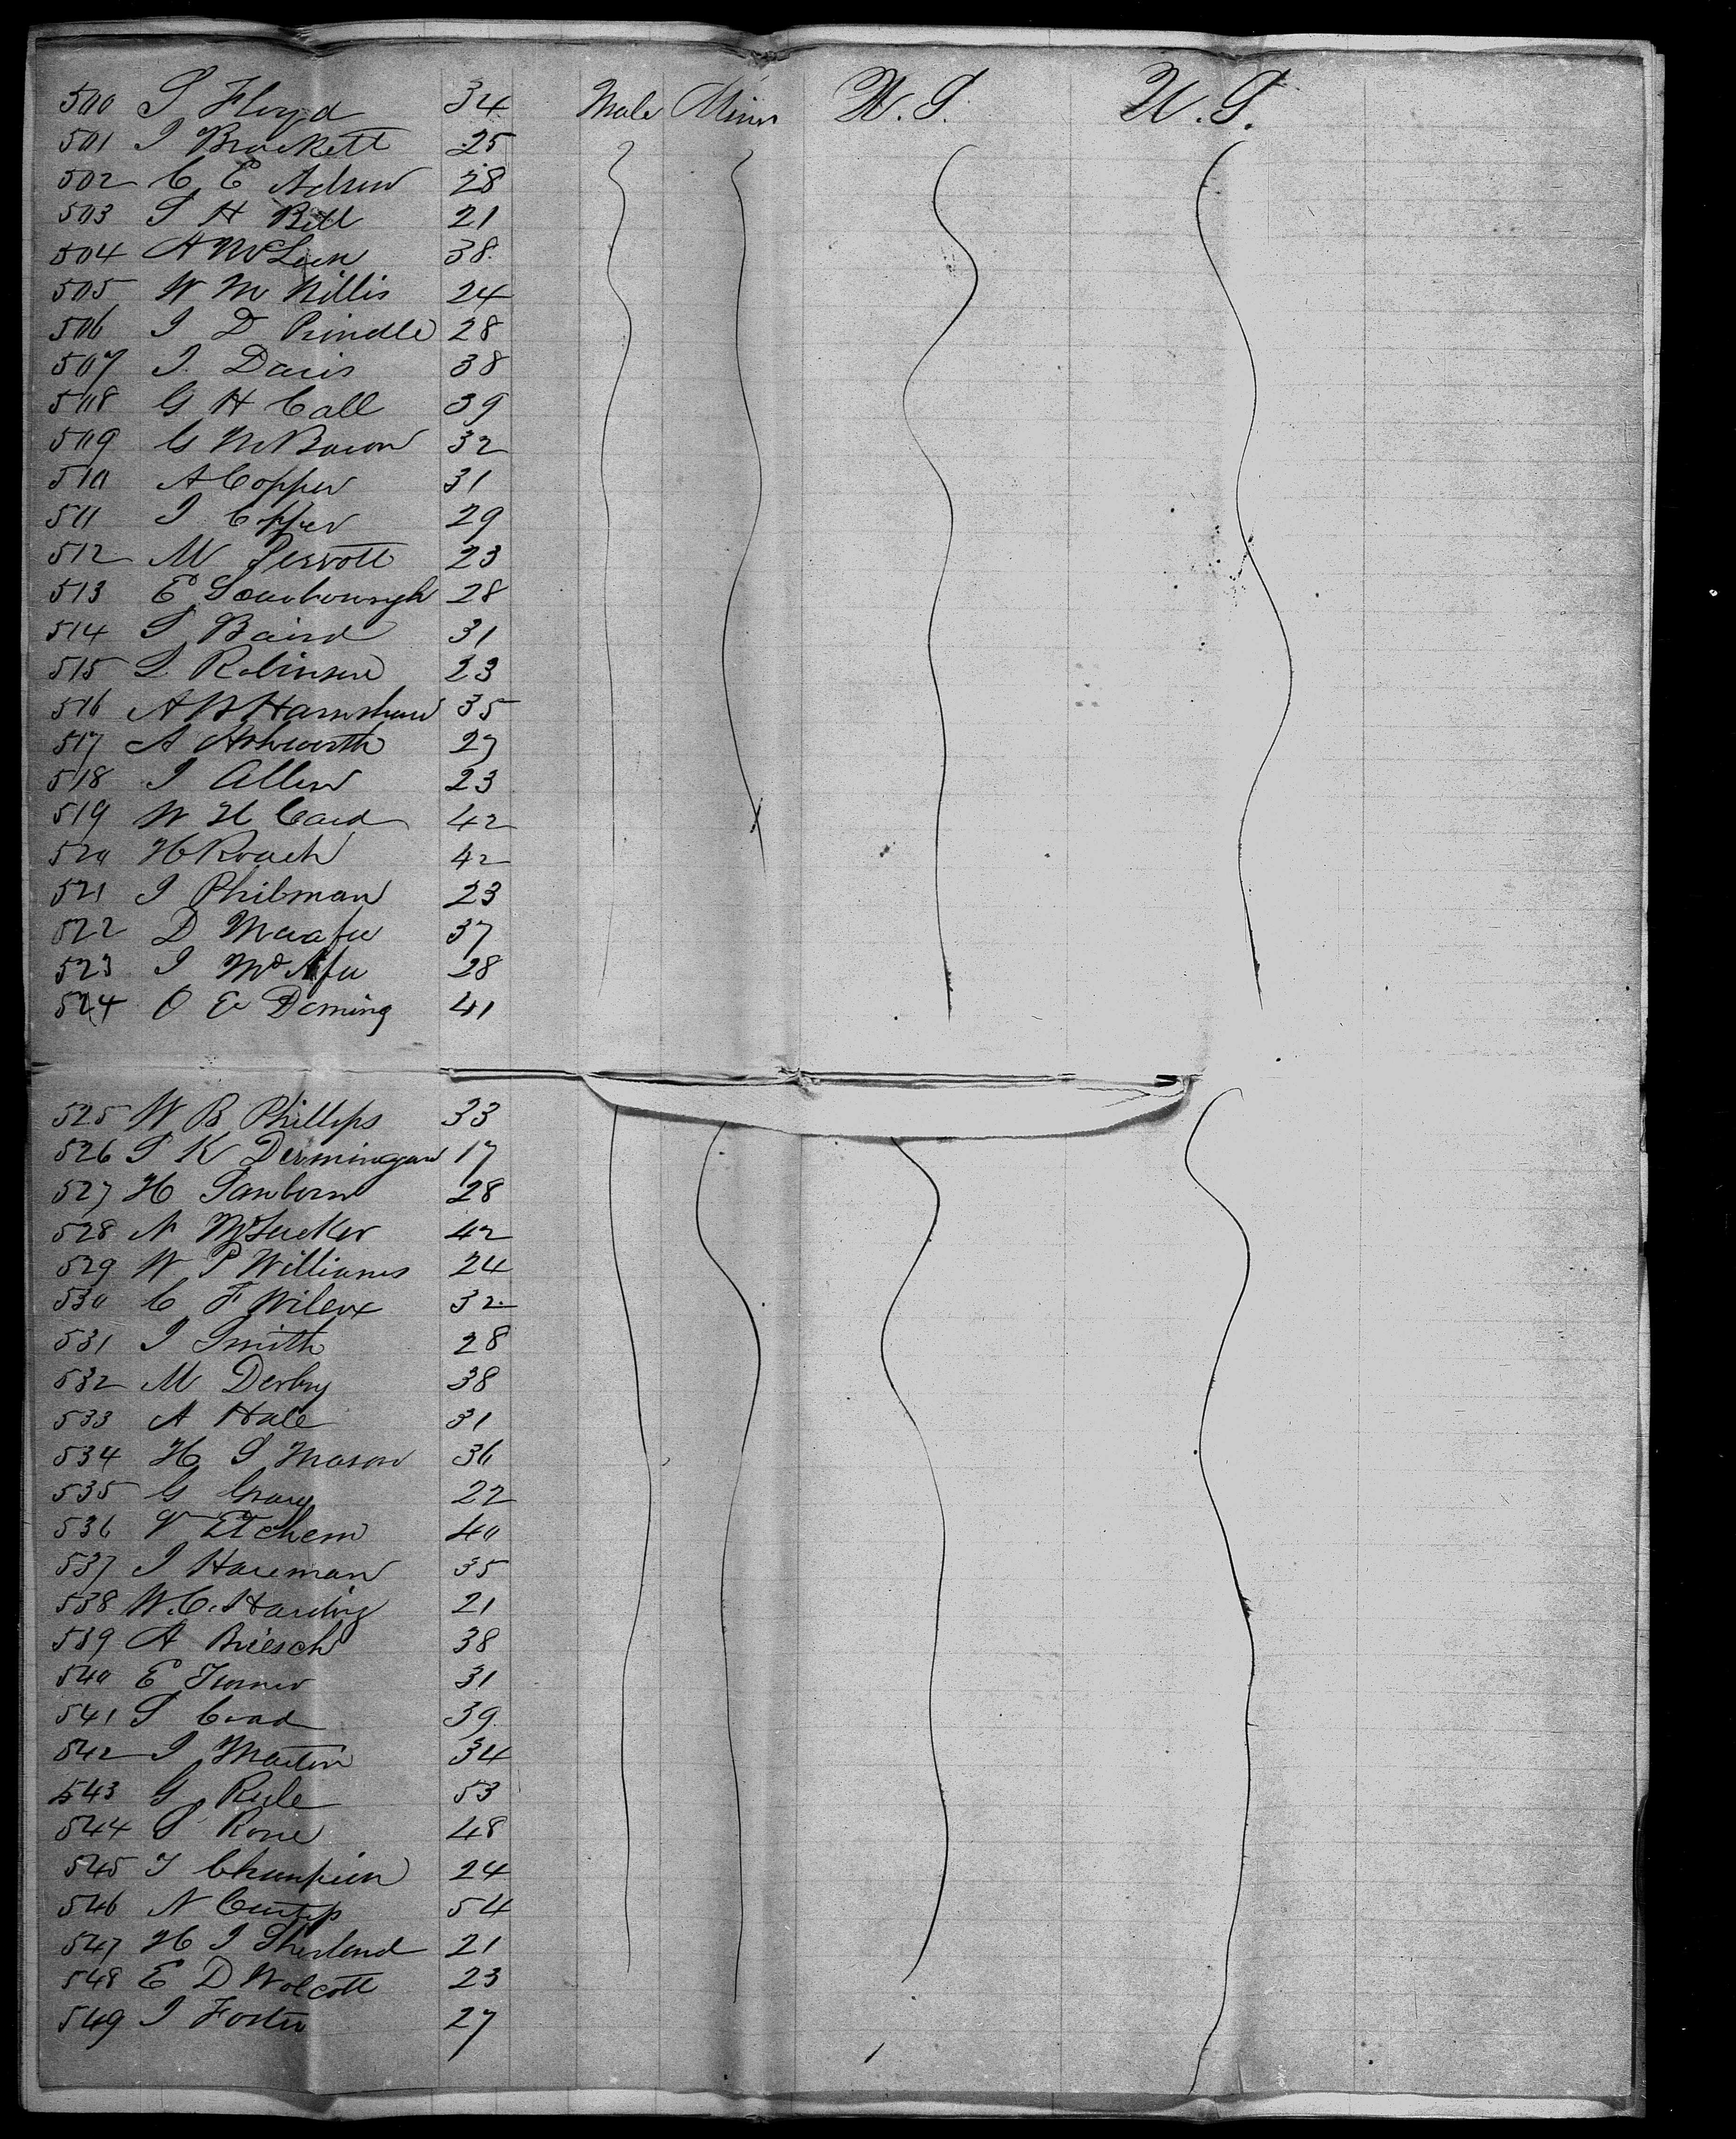 500 S Floyd 34 Male Miner U.S. U.S.
501 J Brackett 25
502 C E Adrew 28
503 S H Bell 21
504 A McLeen 38
505 W M Willis 24
506 J D Prindle 28
507 J. Davis 38
508 G H Call 39
509 G M Bacon 32
510 A Copper 31
511 J Copper 29
512 M Perrott 23
513 E 28
514 S Baird 31
515 L Robinson 23
516 A B Harnshaw 35
517 A Ashworth 27
518 J Allen 23
519 W H Card 42
520 H Roach 42
521 J Philman 23
522 D 37
523 J 28
524 O E Deming 41
525 W B Phillips 33
526 S K 17
527 H Sanborn 28
528 N 42
529 W P Williams 24
530 C F Wilcox 32
531 J Smith 28
532 M Derby 38
533 A Hale 31
534 H S Mason 36
535 G Gray 22
536 V 40
537 J Hareman 35
538 W.C. Harding 21
539 A Briesch 38
540 E Turner 31
541 S 39
542 J Martin 34
543 G Rule 53
544 S Rowe 48
545 T Champion 24
546 N Curtis 54
547 H J Sherland 21
548 E D Wolcott 23
549 J Foster 27